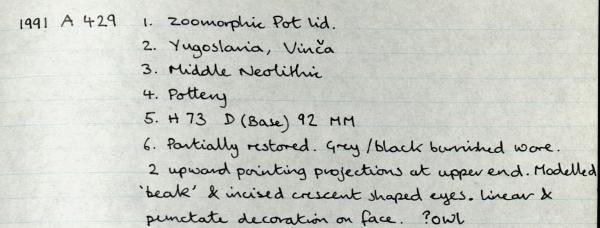 1991 A 429 1. Zoomorphic Pot lid.
2. Yugoslavia, Vinča
3. Middle Neolithic
4. Pottery
5. H 73 D (Base) 92 MM
6. Partially restored. Grey/black burnished ware.
2 upward pointing projections at upper end. Modelled
'beak' & incised crescent shaped eyes. Linear &
punctate decoration on face. ?owl